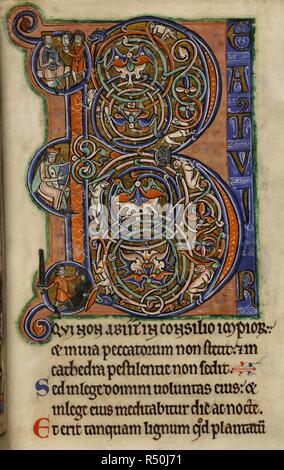 BEATVS VIR
QVI NON ABIIT IN CONSILIO IMPIOR:
& in uia peccatorum non stetit: & in
cathedra pestilentie non sedit.
Sed in lege domini uoluntas eius: &
in lege eius meditabitur die ac nocte.
Et erit tanquam lignum qd plantatū
alamy
Image ID: R50J71
www.alamy.com